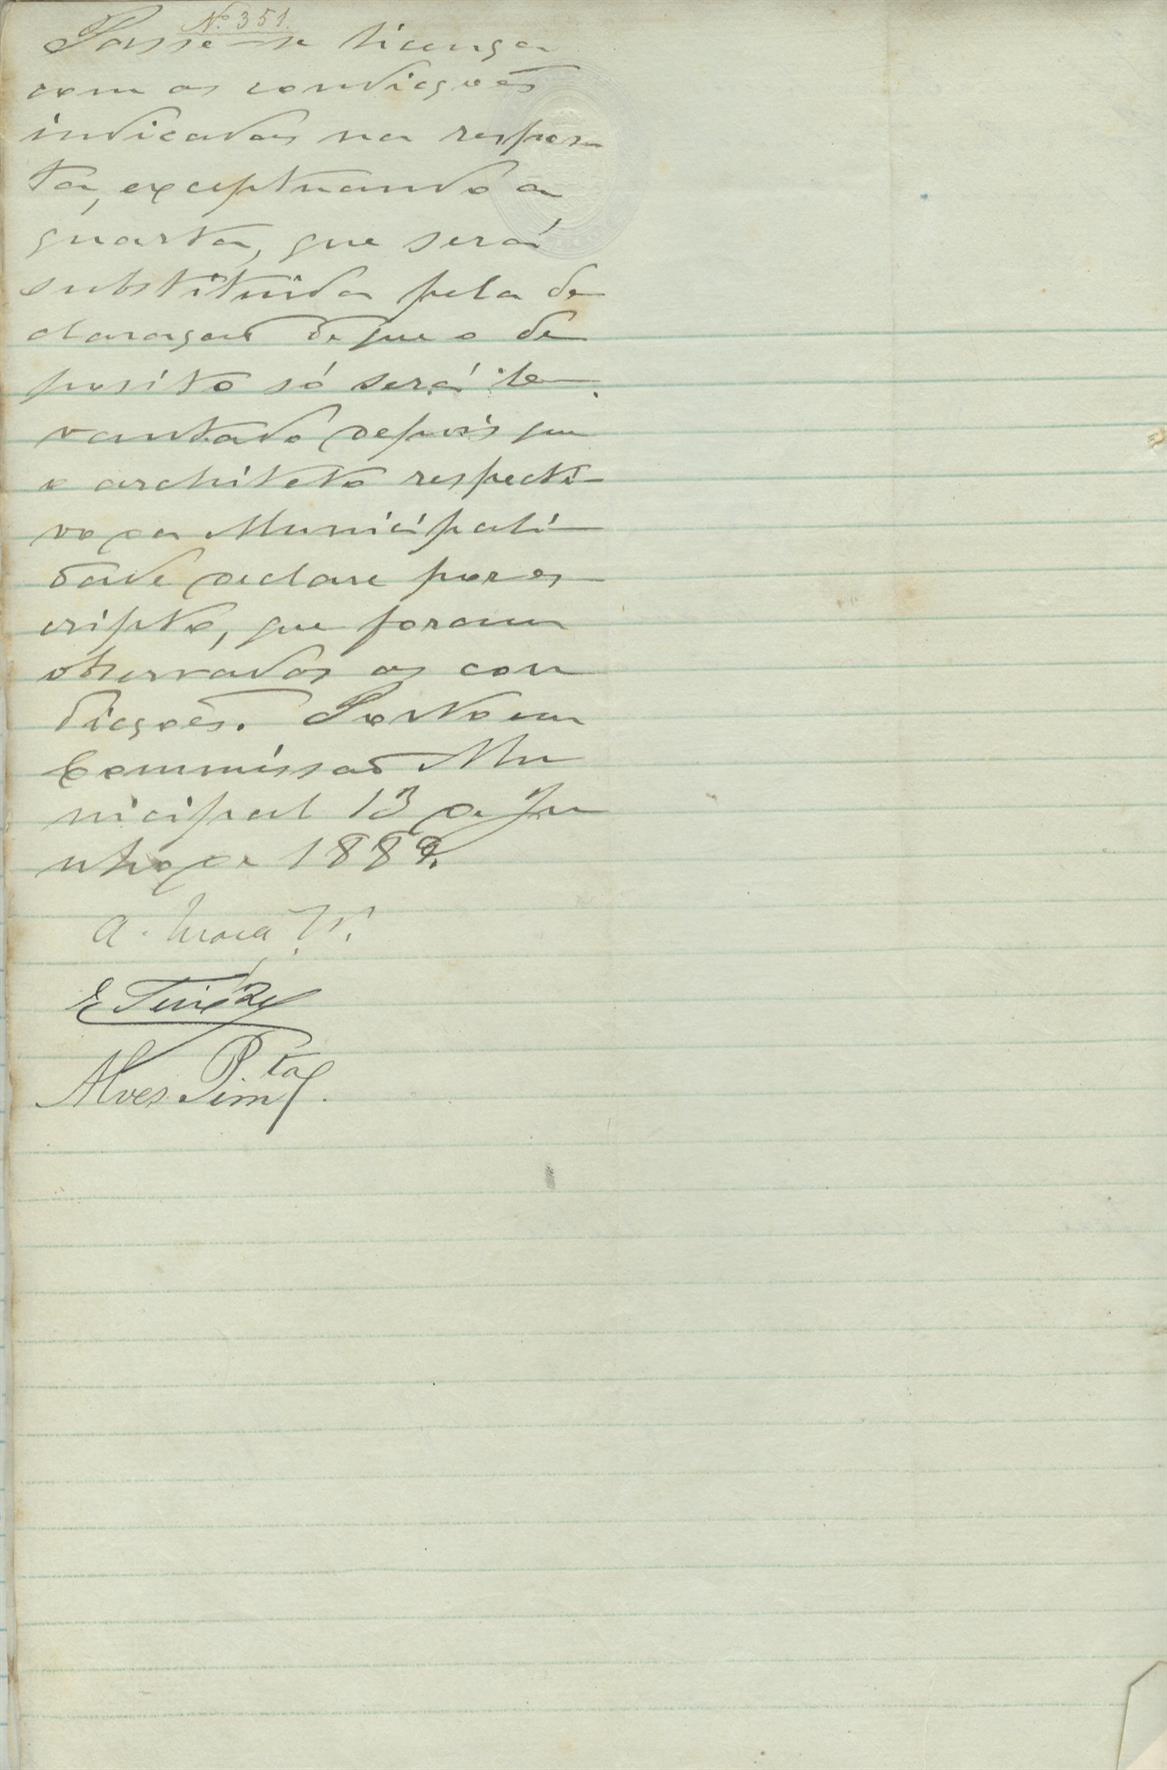 Nº 351.
Passe-se licença
com as condicções
indicadas na respos
ta, exceptuando a
quarta, que será
substituida pela de
claração de que o de
posito só será le
vantado depois que
o architeto respecti
vo da Municipali
dade declare por es
cripto, que foram
observadas as con
dicções. Porto em
Commissão Mu
nicipal 13 de Ju
nho de 1889.
A.
E
Alves Pimta